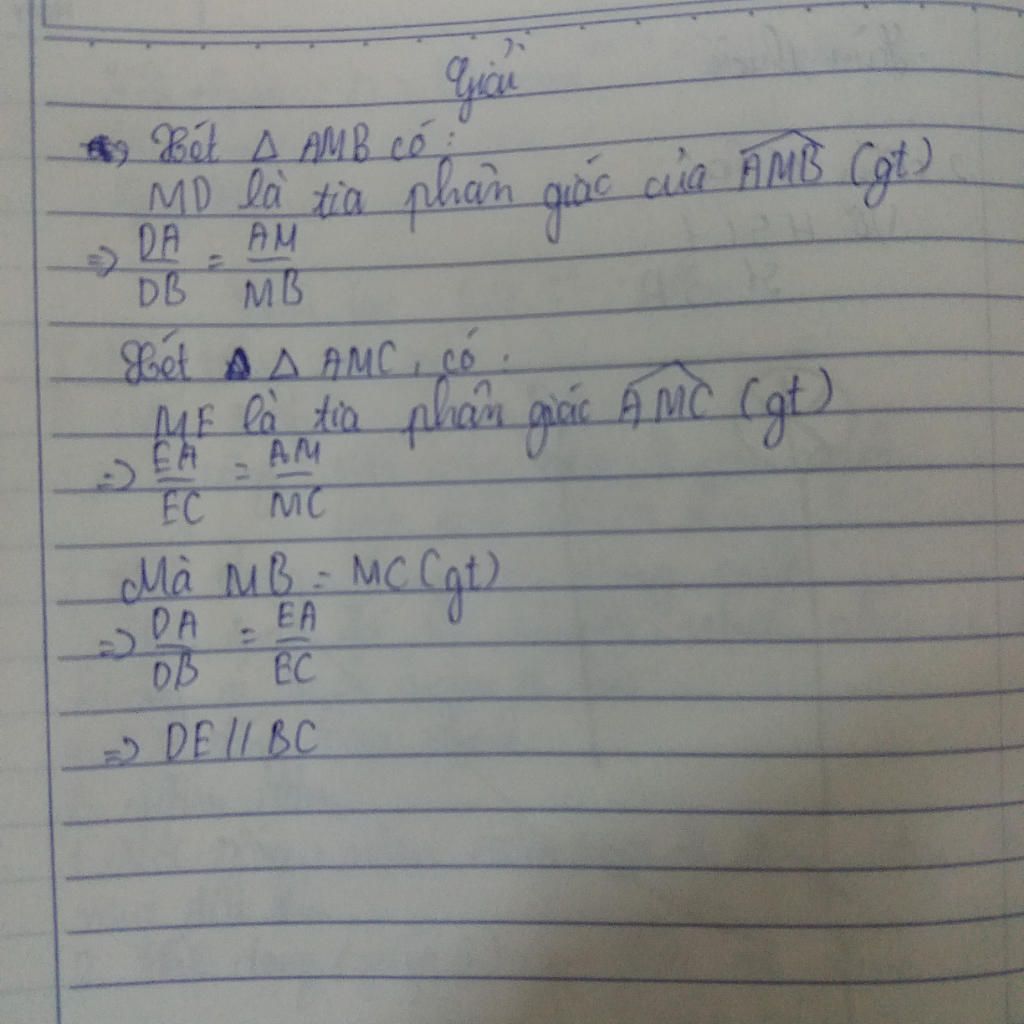 Giải
=> Xét Δ AMB có:
MD là tia phân giác của AMB (gt)
=> DA/DB = AM/MB
Xét Δ AMC, có:
ME là tia phân giác AMC (gt)
=> EA/EC = AM/MC
Mà MB = MC (gt)
=> DA/DB = EA/EC
=> DE // BC